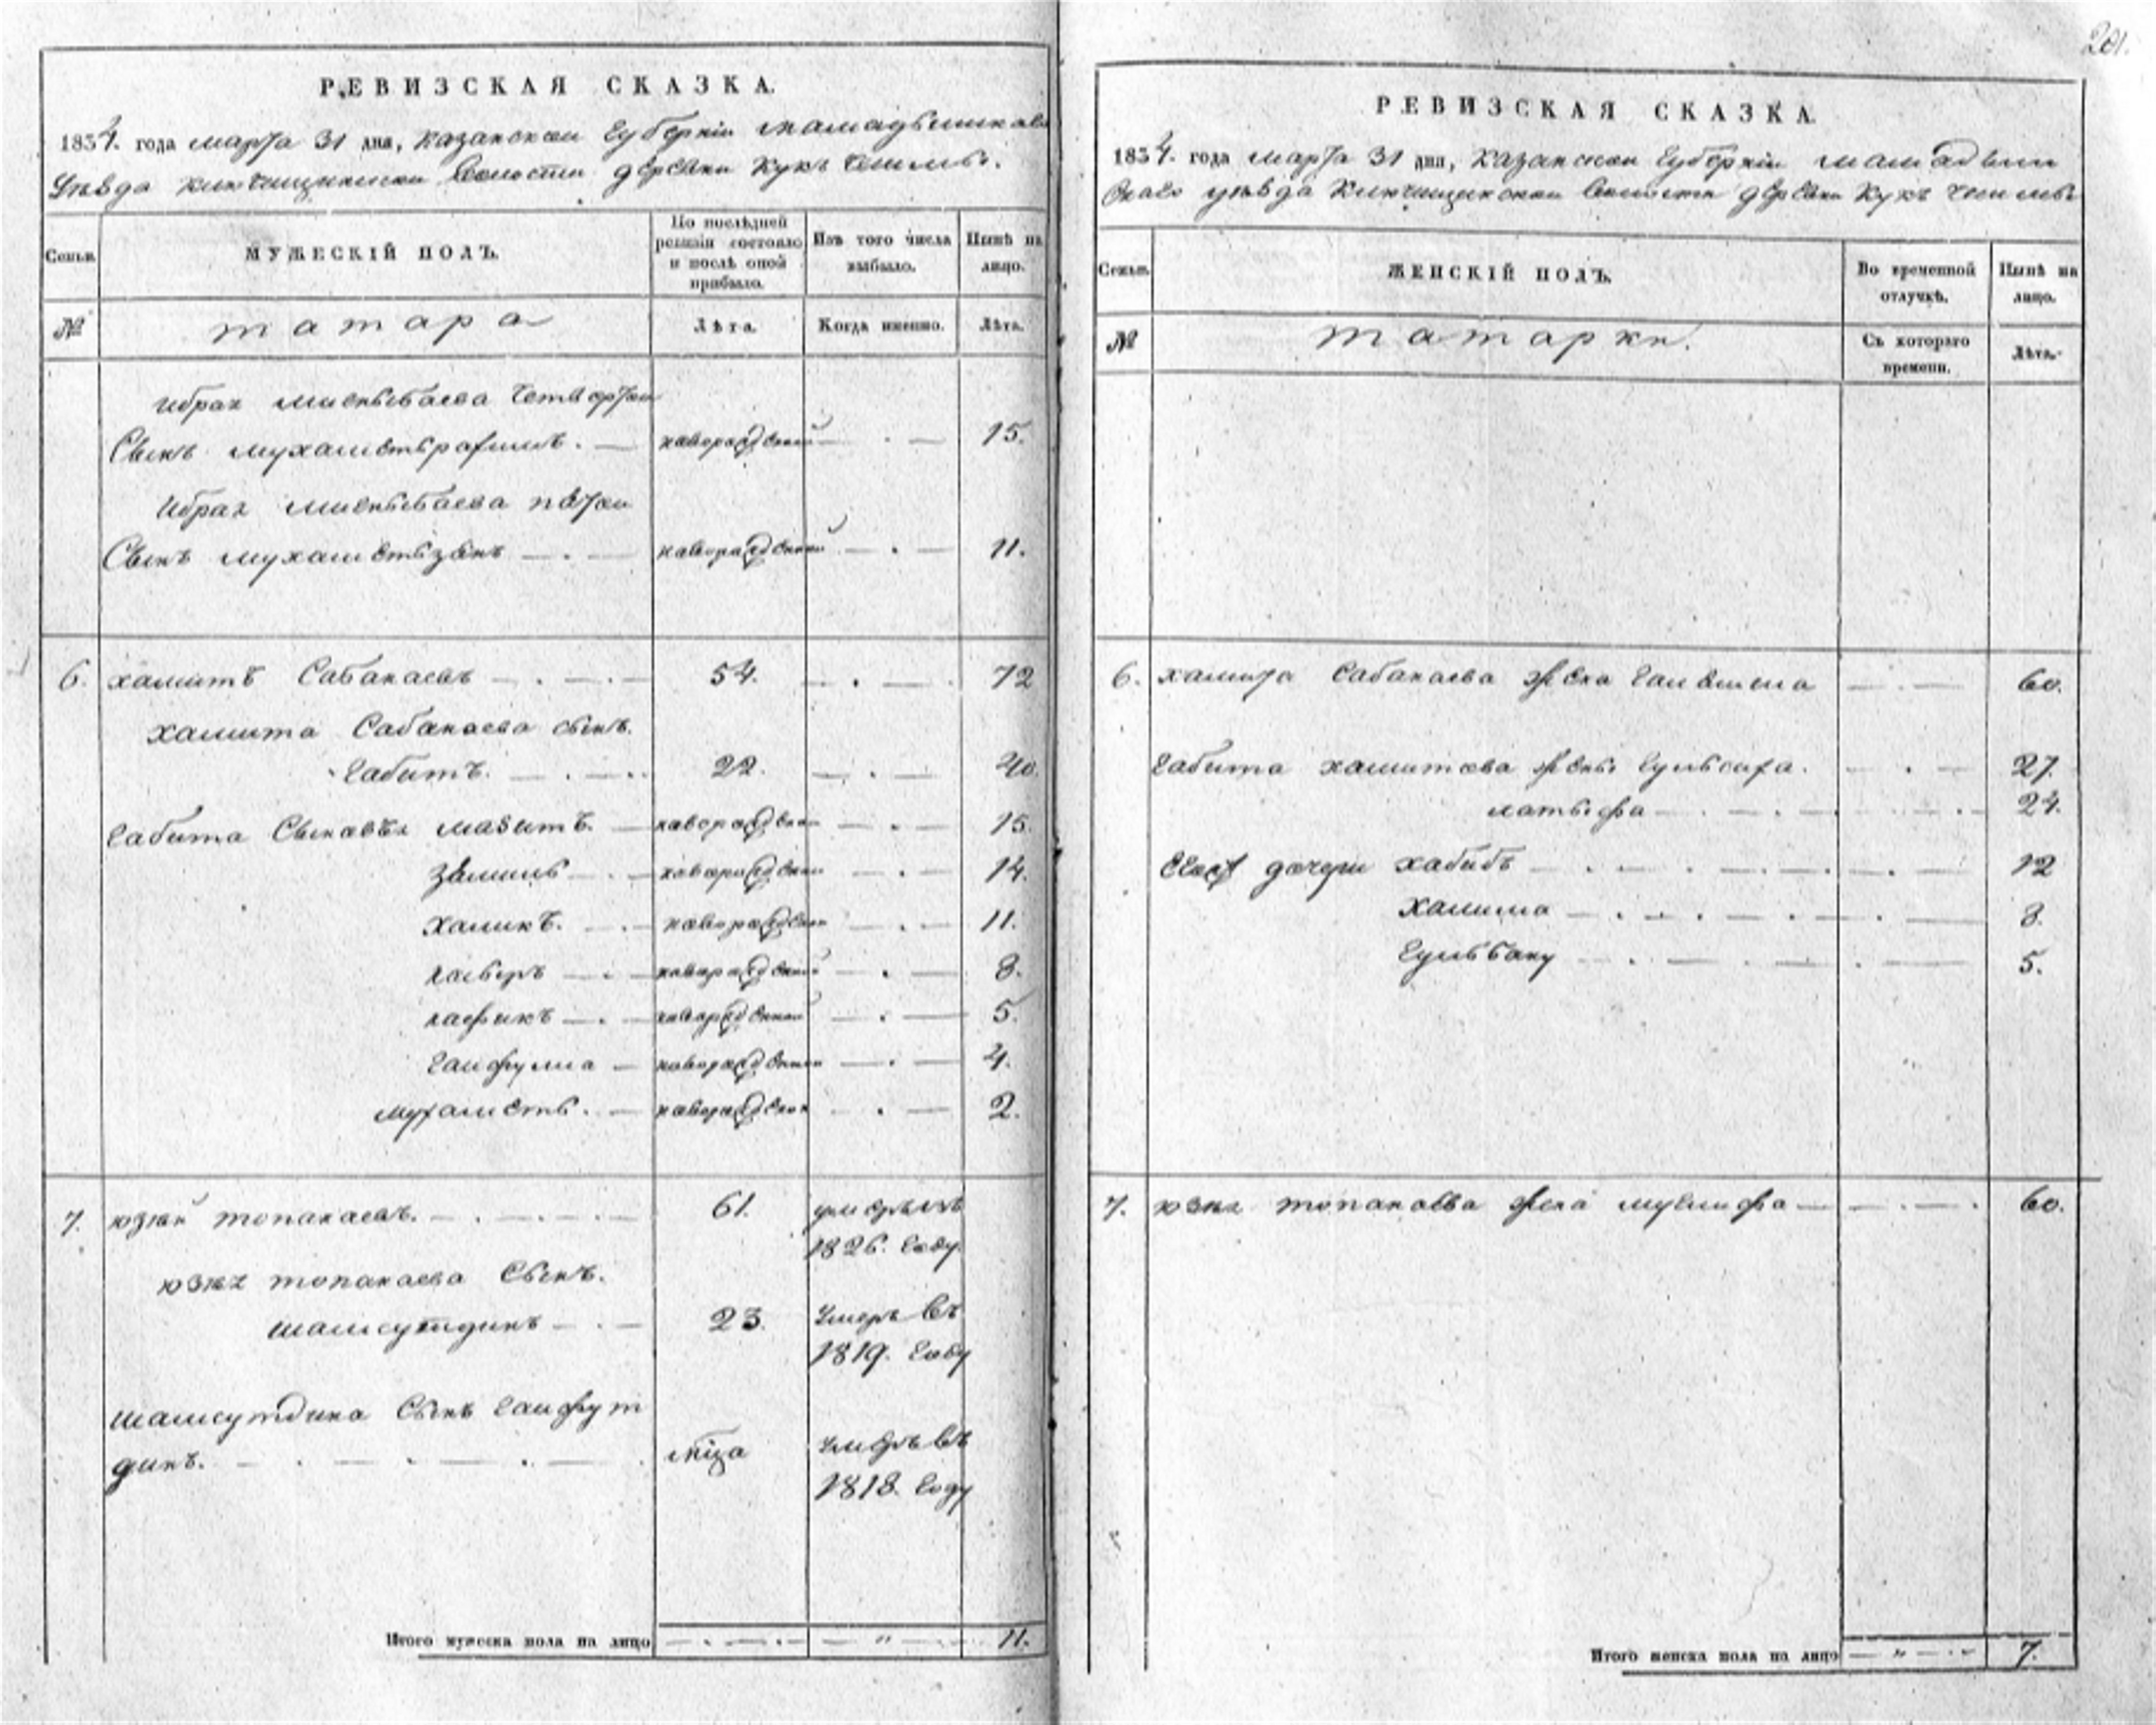 201.
РЕВИЗСКАЯ СКАЗКА.
1834. года марта 31 дня, Казанской Губерніи Мамадышскаго
Уѣзда Волости деревни Кукъ Чишмы.
Семьи. МУЖЕСКІЙ ПОЛЪ. По послѣдней ревизіи состояло и послѣ оной прибыло. Изъ того числа выбыло. Нынѣ на лицо.
№ татара Лѣта. Когда именно. Лѣта.
Ибрая четвертой
Сынъ Мухаметьрахимъ. — новорожденной — . — 15.
Ибрая пятой
Сынъ Мухаметьзянъ — . — новорожденной — . — 11.
6. Хамитъ Сабанаевъ — . — . — 54. — . — 72
Хамита Сабанаева сынъ.
Габитъ. — . — . 22. — . — 40.
Габита Сыновья Мазитъ. — новорожденной — . — 15.
Зямиль — . — новорожденной — . — 14.
Халикъ. — . — новорожденной — . — 11.
— . — новорожденной — . — 8.
— . — новорожденной — . — 5.
Гайфулла — новорожденной — . — 4.
Мухаметь. — новорожденной . — 2.
7. Юзей Топанаевъ. — . — . — 61. умеръ въ
1826. Году.
Юзея Топанаева Сынъ.
Шамсутдинъ — . — 23. Умеръ въ
1819. Году
Шамсутдина Сынъ Гайфут
динъ. — . — . — . — . умеръ въ
1818. Году
Итого мужеска пола на лицо — . — . — „ — . 11.
РЕВИЗСКАЯ СКАЗКА.
1834. года марта 31 дня, Казанской Губерніи Мамадыш
скаго уѣзда Волости деревни Кукъ Чишмы
Семьи. ЖЕНСКІЙ ПОЛЪ. Во временной отлучкѣ. Нынѣ на лицо.
№ татарки. Съ котораго времени. Лѣта.
6. Хамита Сабанаева жена — . — 60.
Габита Хамитова жены Гульсифа. — . — 27.
Латыфа — . — . — . — 24.
Его дочери Хабибъ — . — . — . — 12
Халима — . — . — . — 8.
Гульбану — . — . — . — 5.
7. Юзея Топанаева жена — . — . 60.
Итого женска пола на лицо — „ — . — 7.